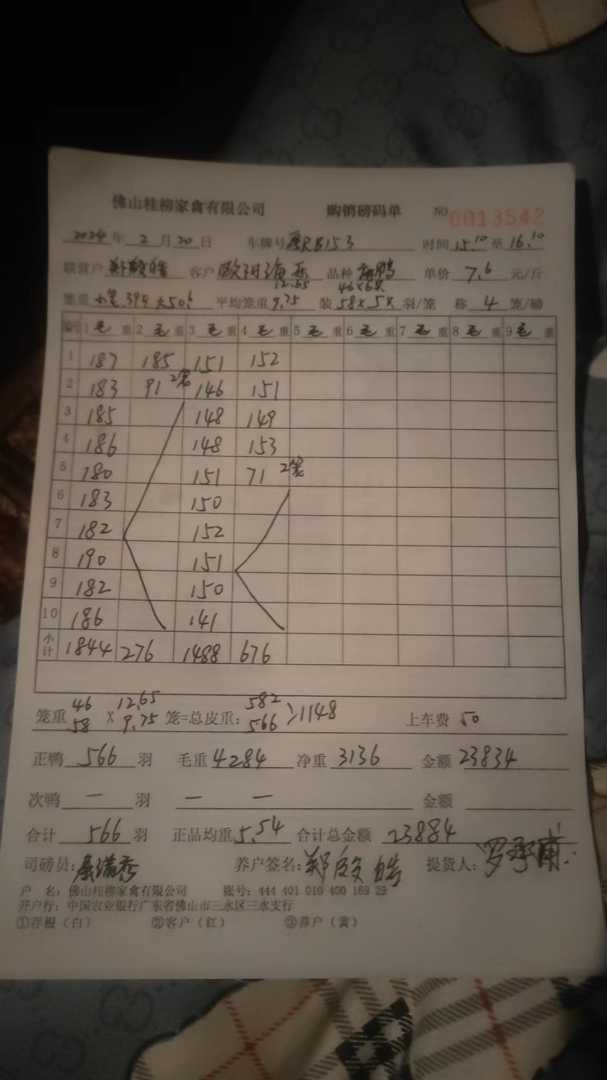 佛山桂柳家禽有限公司 购销磅码单 NO 0013542
2024年 2月 20日 车牌号 RB153 时间 15:10 至 16:10
联营户 客户 欧 海 品种 鸭 单价 7.6 元/斤
12.65 46×6只
笼重 小笼 394 大 506 平均笼重 9.75 装 58×5× 羽/笼 称 4 笼/磅
编号 1 毛 重 2 毛 重 3 毛 重 4 毛 重 5 毛 重 6 毛 重 7 毛 重 8 毛 重 9 毛 重
1 187 185 151 152
2 183 91 2笼 146 151
3 185 148 149
4 186 148 153
5 180 151 71 2笼
6 183 150
7 182 152
8 190 151
9 182 150
10 186 141
小计 1844 276 1488 676
46 12.65 582
笼重 58 × 9.75 笼=总皮重: 566 >1148 上车费 50
正鸭 566 羽 毛重 4284 净重 3136 金额 23834
次鸭 — 羽 — — 金额
合计 566 羽 正品均重 5.54 合计总金额 23884
司磅员: 养户签名: 郑 皓 提货人: 罗
户 名: 佛山桂柳家禽有限公司 账号: 444 401 010 400 169 29
开户行: 中国农业银行广东省佛山市三水区三水支行
①存根(白) ②客户(红) ③养户(黄)